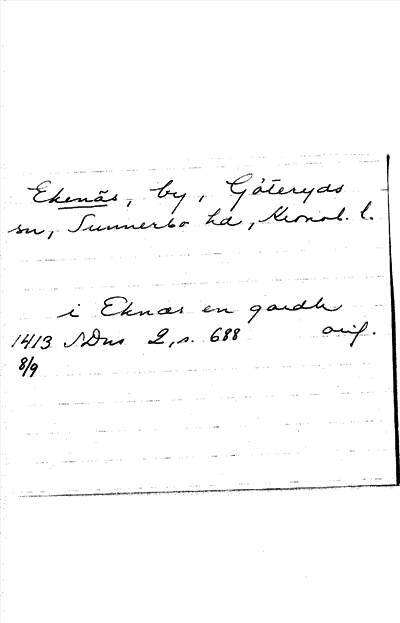 Ekenäs, by, Göteryds
sn, Sunnerbo hd, Kronob. l.
i Eknæs en gardh
1413 SDns 2, s. 688 orig.
8/9